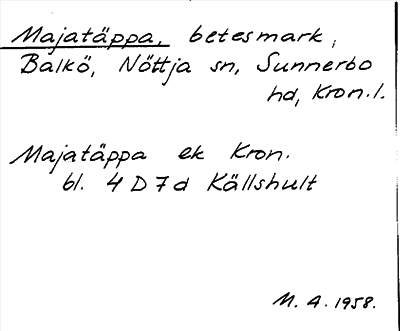 Majatäppa, betesmark,
Balkö, Nöttja sn, Sunnerbo
hd, Kron.l.
Majatäppa ek Kron.
bl. 4 D 7 d Källshult
M. A. 1958.